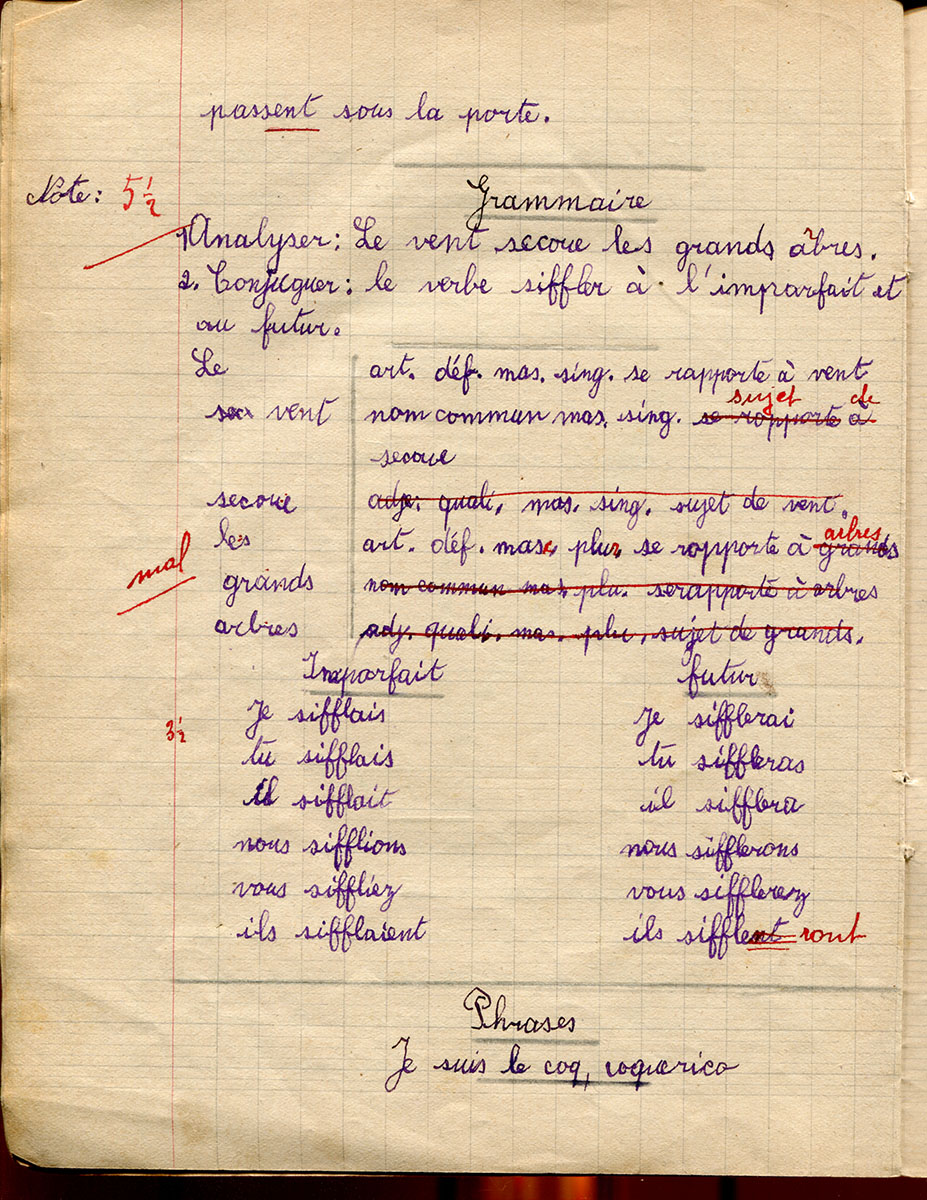 passent sous la porte.
Note: 5 ½
Grammaire
1 Analyser: Le vent secoue les grands ârbres.
2. Conjuguer: le verbe siffler à l'imparfait et
au futur.
Le art. déf. mas. sing. se rapporte à vent
sujet de
vent nom commun mas. sing. se rapporte à
secoue
secoue adje. quali. mas. sing. sujet de vent.
arbres
les art. déf. masc. plur. se rapporte à grands
mal
grands nom commun mas. plu. se rapporte à arbres
arbres adj. quali. mas. plu, sujet de grands.
Imparfait futur
3 ½
Je sifflais Je sifflerai
tu sifflais tu siffleras
il sifflait il sifflera
nous sifflions nous sifflerons
vous siffliez vous sifflerez
ils sifflaient ils sifflent ront
Phrases
Je suis le coq, coquerico